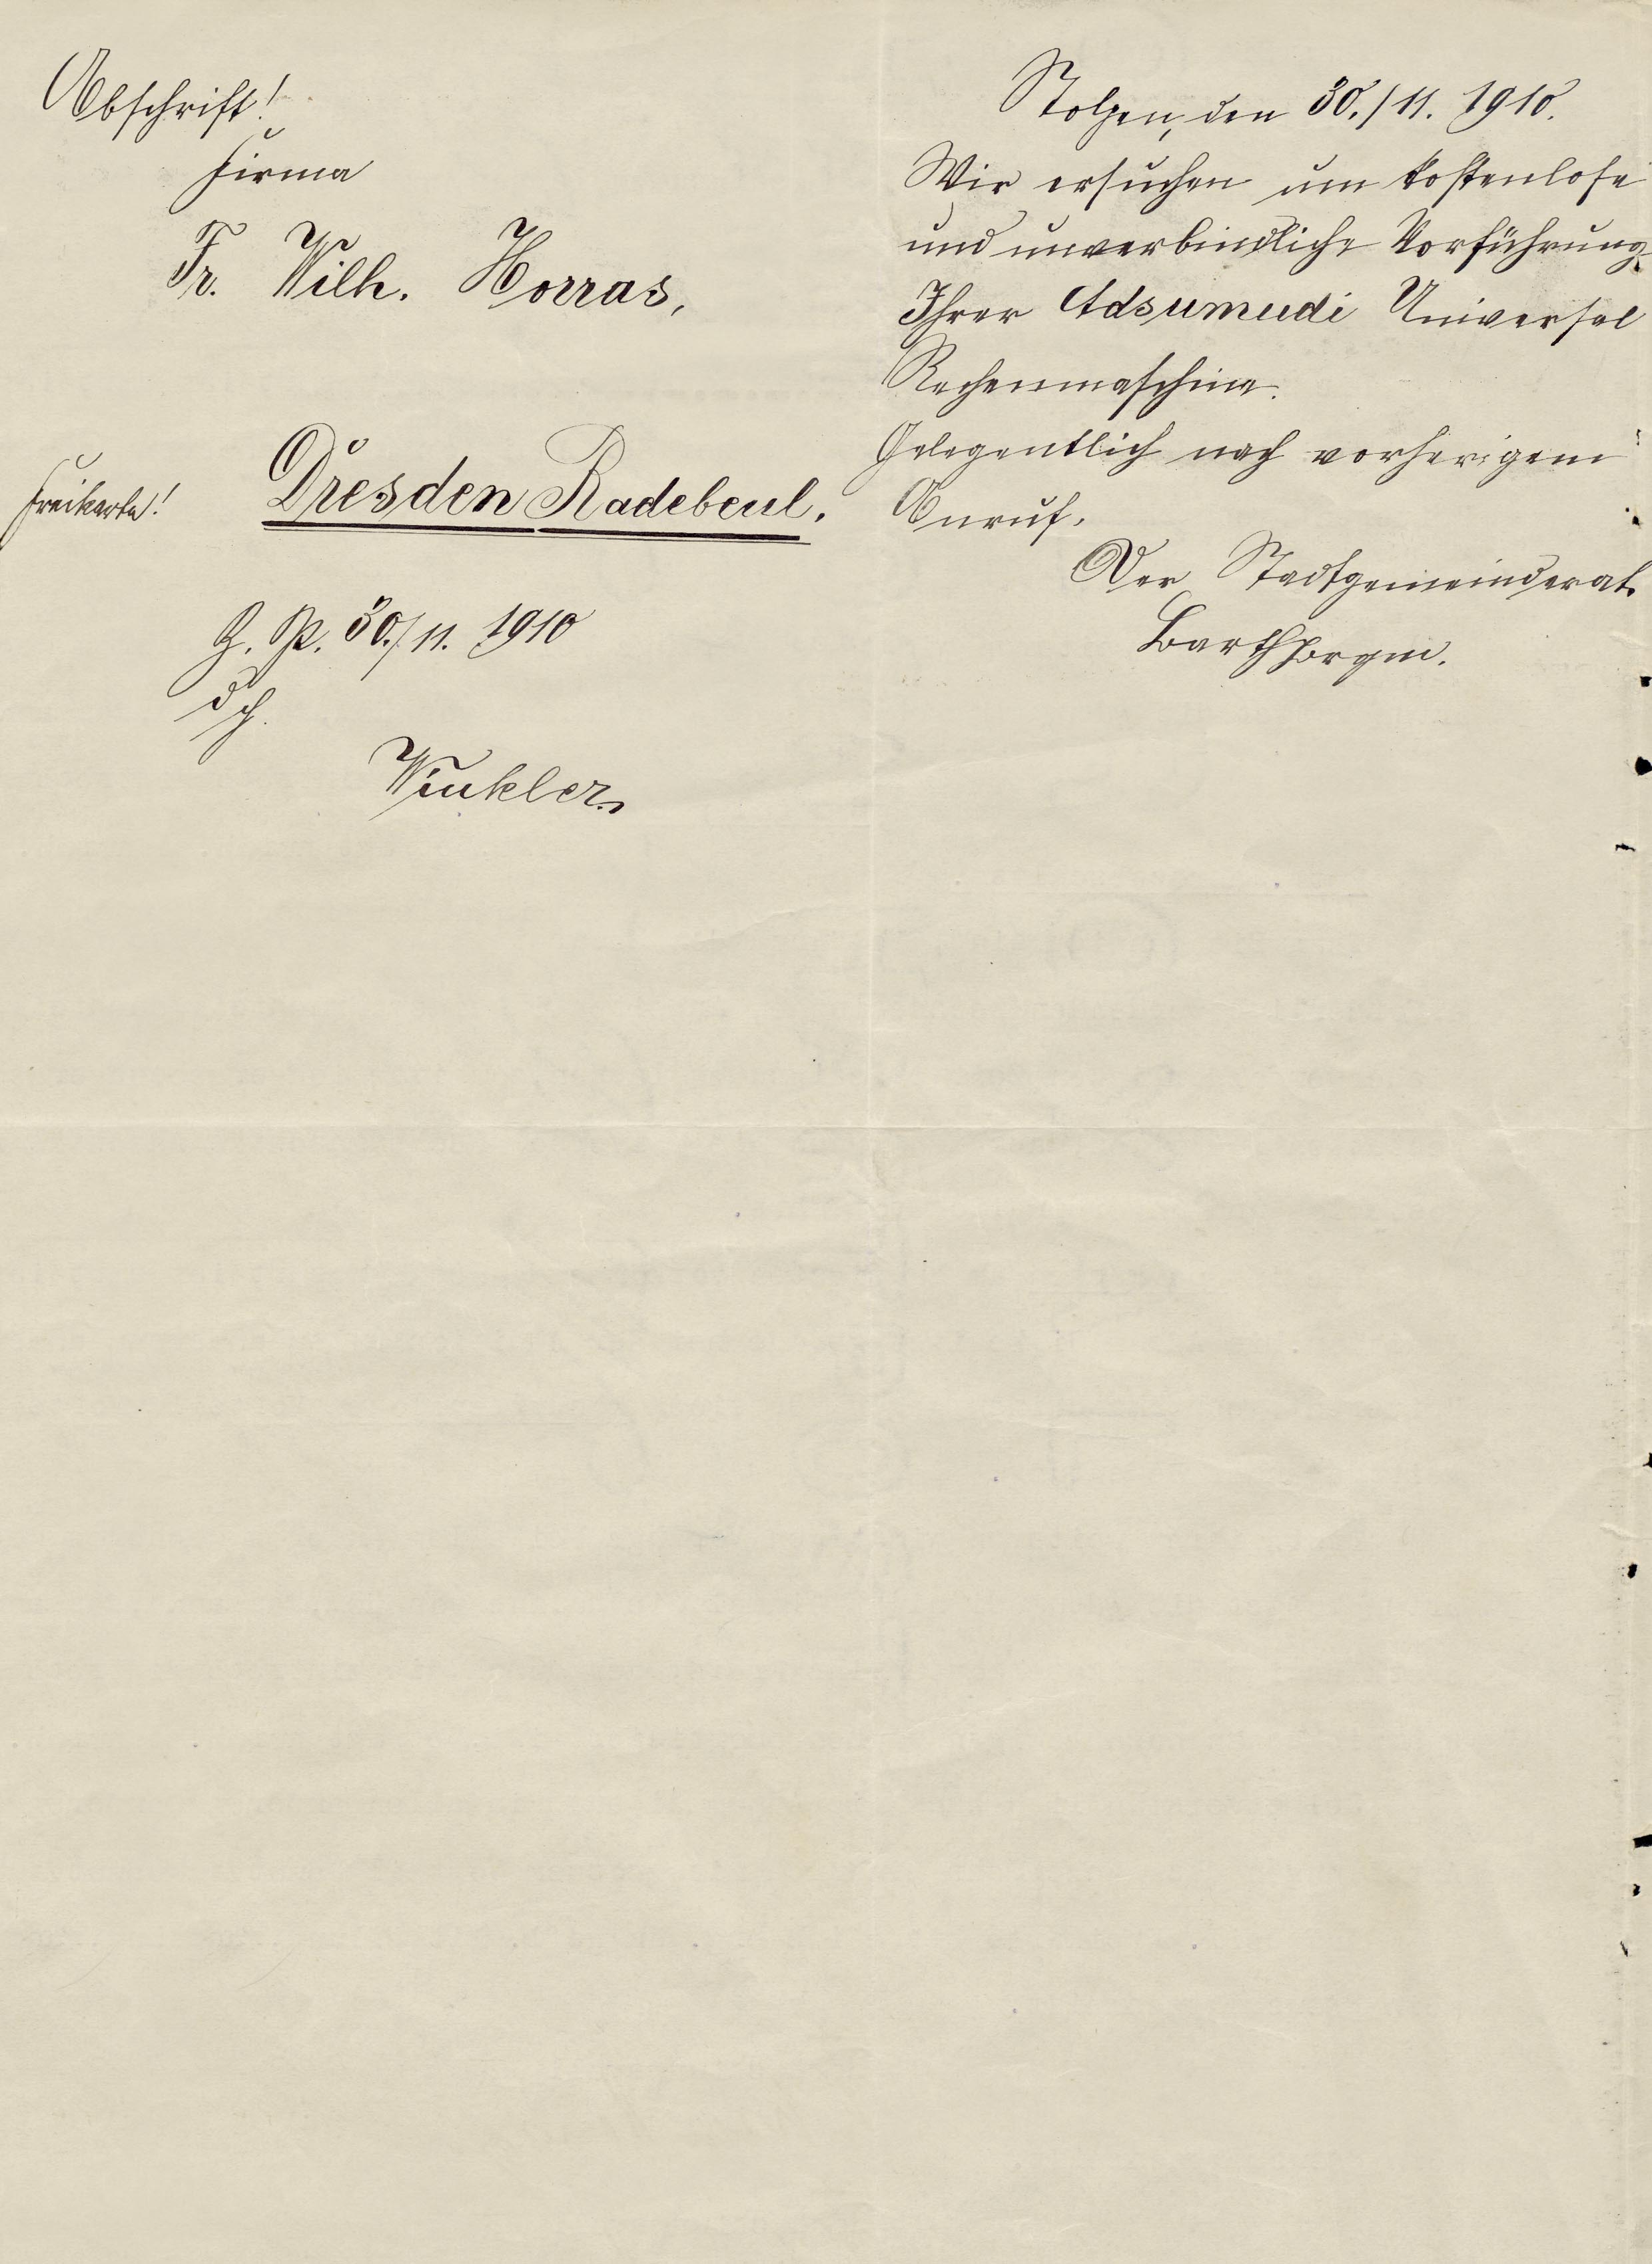 Abschrift!
Firma
Fr. Wilh. Horras,
Freikarte!
Dresden Radebeul.
Z. P. 30./11. 1910
dh.
Winkler.
Stolpen, den 30./11. 1910.
Wir ersuchen um kostenlose
und unverbindliche Vorführung
Ihrer Adsumudi Universal
Rechenmaschine.
Gelegentlich nach vorherigem
Anruf.
Der Stadtgemeinderat.
Barth